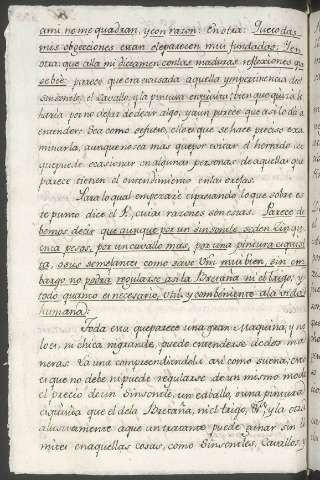 ami no me quadran, y con razon. En otra: Que todas
mis objecciones eran el parecer mui fundadas. Y en
otra: que calla mi dictamen con las maduras reflexiones que
se hicé: parece que era escusada aquella impertinencia del
sinsonte, el Cavallo, y la pintura exquisita: bien que quizá lo
haria por no dejar de decir algo, y aun parece que asi lo dá a
entender. Sea como se fuere, ello es que se hace preciso exa
minarla, aunque no sea mas que por evitar el
que puede ocasionar en algunas personas de aquellas que
parece tienen el entendimiento en las orejas.
Para lo qual empezaré expresando lo que sobre es
te punto dice el R. cuias razones son estas. Parece de
bemos decir que aunque por un sinsonte se den cinqu
enta pesos, por un cavallo mas, por una pintura exquisi
ta, o sus semejantes como save Vm. mui bien, sin em
bargo no podrá regularse asi la Bretaña ni el trigo, y
todo quanto es necesario, util, y combeniente a la vida
humana.
Toda esta que parece una gran Maquina, y no
lo es, ni chica ni grande, puede entenderse de dos ma
neras. La una comprendiendola asi como suena, esto
es que no debe ni puede regularse de un mismo modo
el precio de un Sinsonte, un caballo, o una pintura ex
quisita que el de la Bretaña, ni el trigo, &.ª y la otra
alusivamente a que un tratante puede ganar sin li
mites en aquellas cosas, como Sinsontes, Cavallos, y